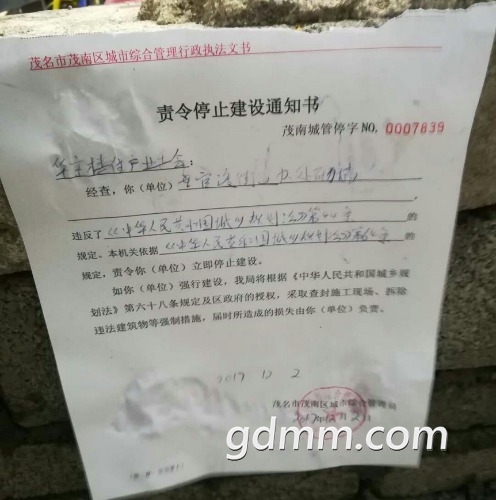 茂名市茂南区城市综合管理行政执法文书
责令停止建设通知书
茂南城管停字 NO. 0007839
经查，你（单位）
违反了《中华人民共和国城乡规划法》第 条 的
规定。本机关依据《中华人民共和国城乡规划法》第 条 的
规定，责令你（单位）立即停止建设。
如你（单位）强行建设，我局将根据《中华人民共和国城乡规
划法》第六十八条规定及区政府的授权，采取查封施工现场、拆除
违法建筑物等强制措施，届时所造成的损失由你（单位）负责。
2017 12 2
茂名市茂南区城市综合管理局
2017年12月2日
gdmm.com